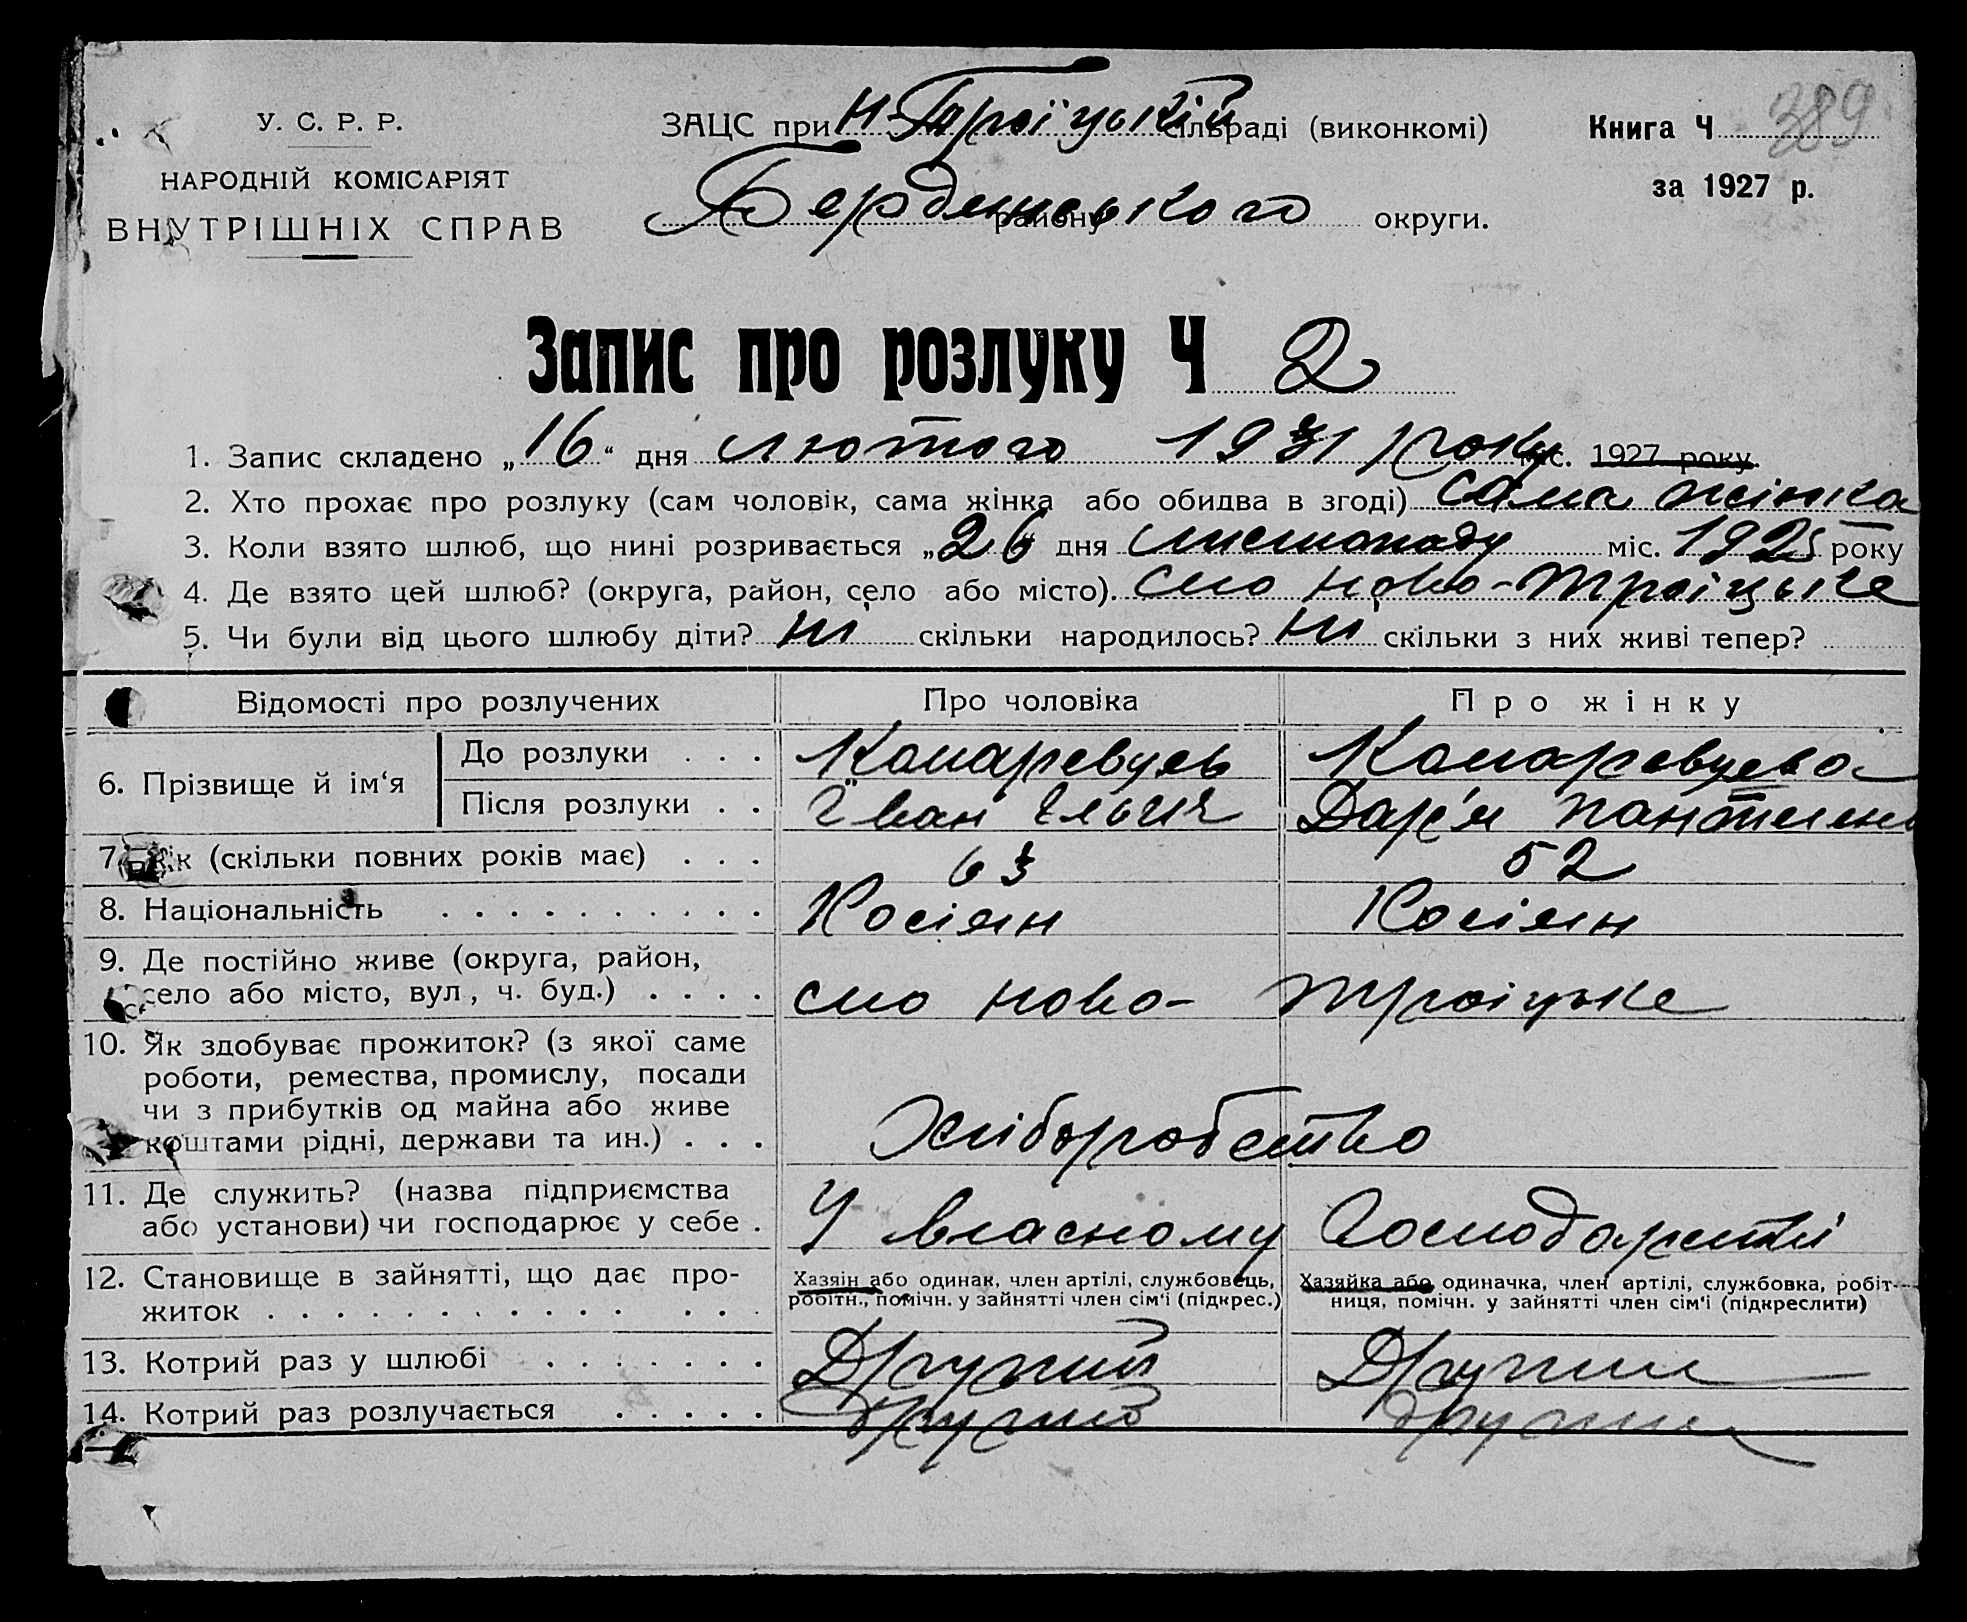 У. С. Р. Р.
НАРОДНІЙ КОМІСАРІЯТ
ВНУТРІШНІХ СПРАВ
ЗАЦС при Н-Троїцькій сільраді (виконкомі)
Бердянського району округи.
Книга Ч 389
за 1927 р.
Запис про розлуку Ч 2
1. Запис складено „16“ дня лютого 1931 року міс. 1927 року.
2. Хто прохає про розлуку (сам чоловік, сама жінка або обидва в згоді) сама жінка
3. Коли взято шлюб, що нині розривається „26 дня листопаду міс. 1925 року
4. Де взято цей шлюб? (округа, район, село або місто). село ново-троіцьке
5. Чи були від цього шлюбу діти? ні скільки народилось? ні скільки з них живі тепер?
Відомості про розлучених Про чоловіка Про жінку
6. Прізвище й ім‘я
До розлуки . . .
Після розлуки . .
Іван Ільич Дар'я
7. Вік (скільки повних років має) . . . 63 52
8. Національність . . . . . . . . . . Росіян Росіян
9. Де постійно живе (округа, район,
село або місто, вул, ч. буд.) . . . . село ново-троіцьке
10. Як здобуває прожиток? (з якої саме
роботи, ремества, промислу, посади
чи з прибутків од майна або живе
коштами рідні, держави та ин.) . . . Хліборобство
11. Де служить? (назва підприємства
або установи) чи господарює у себе . У власному Господарстві
12. Становище в зайнятті, що дає про-
житок . . . . . . . . . . . .
Хазяін або одинак, член артілі, службовець,
робітн., помічн. у зайнятті член сім‘ї (підкрес.)
Хазяйка або одиначка, член артілі, службовка, робіт-
ниця, помічн. у зайнятті член сім‘ї (підкреслити)
13. Котрий раз у шлюбі . . . . . . . Другий Другий
14. Котрий раз розлучається . . . . . другий другий